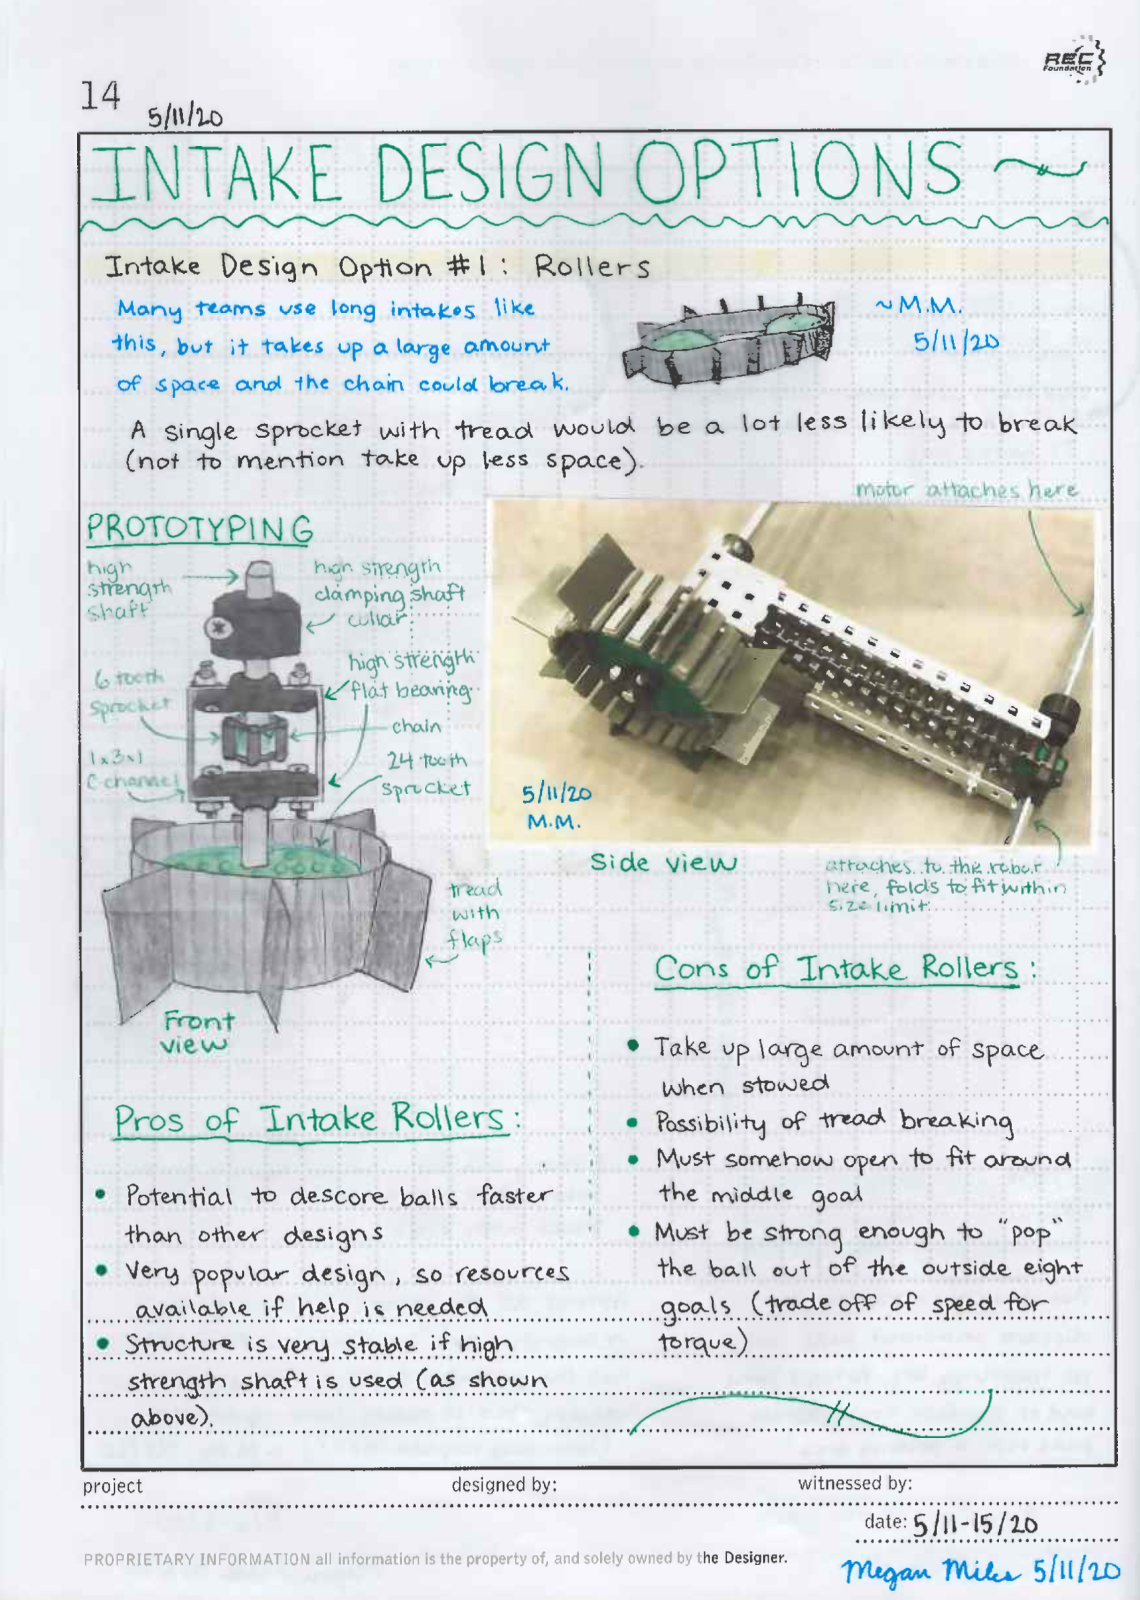 REC
Foundation
14
5/11/20
INTAKE DESIGN OPTIONS
Intake Design Option #1: Rollers
Many teams use long intakes like
this, but it takes up a large amount
of space and the chain could break.
~M.M.
5/11/20
A single sprocket with tread would be a lot less likely to break
(not to mention take up less space).
motor attaches here
PROTOTYPING
high
strength
shaft
high strength
clamping shaft
collar
high strength
flat bearing
6 tooth
sprocket
chain
1x3x1
C-channel
24 tooth
sprocket
5/11/20
M.M.
Side view
attaches to the robot
here, folds to fit within
size limit
tread
with
flaps
Front
view
Cons of Intake Rollers:
• Take up large amount of space
when stowed
• Possibility of tread breaking
• Must somehow open to fit around
the middle goal
• Must be strong enough to "pop"
the ball out of the outside eight
goals (trade off of speed for
torque)
Pros of Intake Rollers:
• Potential to descore balls faster
than other designs
• Very popular design, so resources
available if help is needed
• Structure is very stable if high
strength shaft is used (as shown
above).
project
designed by:
witnessed by:
date: 5/11-15/20
PROPRIETARY INFORMATION all information is the property of, and solely owned by the Designer.
Megan Miles 5/11/20